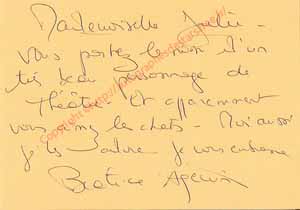 Mademoiselle Julie -
Vous portez le nom d'un
très beau personnage de
Théâtre - Et apparemment
vous aimez les chats - Moi aussi
je les adore je vous embrasse
Béatrice Agenin